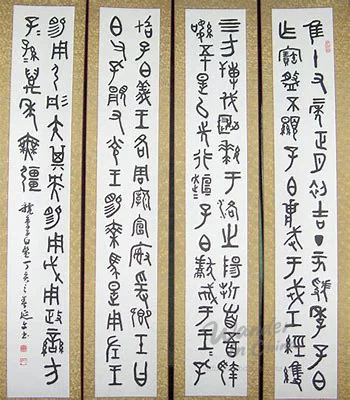 隹十又二年正月初吉丁亥虢季子白
乍寶盤不顯子白壯武于戎工經維
四方搏伐玁狁于洛之陽折首五百執
訊五十是以先行桓子白獻馘于王
孔加子白義王各周廟宣榭爰鄉王曰
白父孔顯又光王賜乘馬是用左王
賜用弓彤矢其央賜用戉用政蠻方
子孫萬年無疆
虢季子白盤丁亥之
Wander
in China